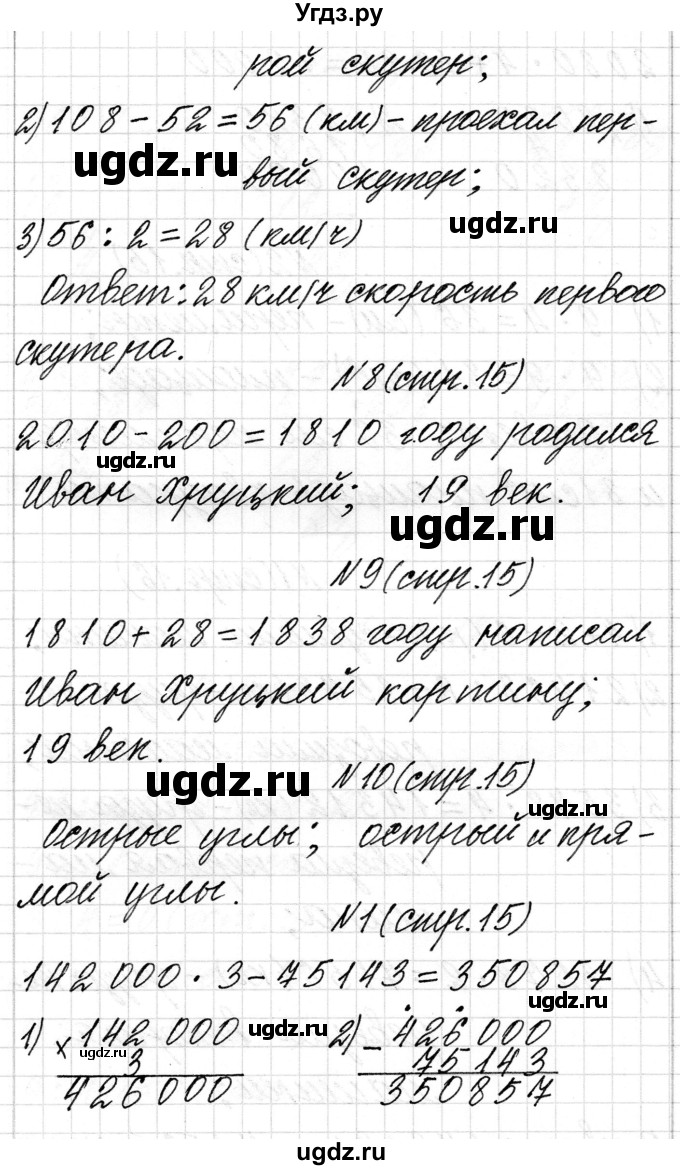 Угдз.ру
рой скутер;
2) 108 - 52 = 56 (км) - проехал пер-
ugdz.ru
вый скутер;
ugdz.ru
3) 56 : 2 = 28 (км/ч)
Ответ: 28 км/ч скорость первого
скутера.
№8 (стр. 15)
2010 - 200 = 1810 году родился
ugdz.ru
Иван Хруцкий; 19 век.
ugdz.ru
№9 (стр. 15)
1810 + 28 = 1838 году написал
Иван Хруцкий картину;
19 век.
ugdz.ru
№10 (стр. 15)
ugdz.ru
Острые углы; острый и пря-
мой углы.
№1 (стр. 15)
142 000 · 3 - 75143 = 350 857
ugdz.ru
1) × 142 000 ugdz.ru 2) - 426 000
ugdz.ru 3 75 143
426 000 350 857
ugdz.ru